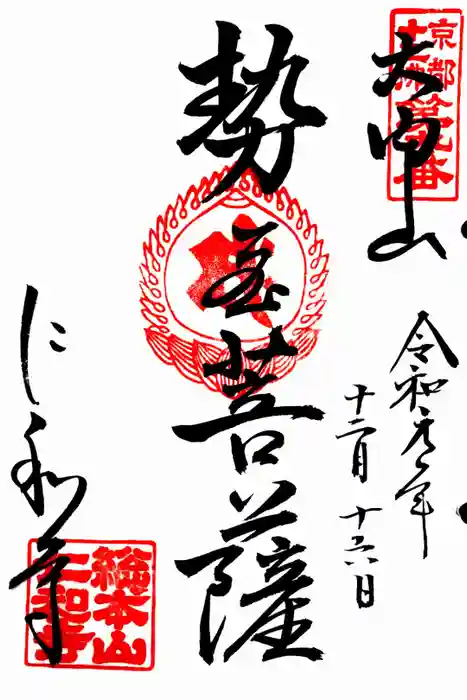 京都
十三佛
第九番
大内山
令和元年
十二月十六日
勢至菩薩
に和寺
総本山
仁和寺